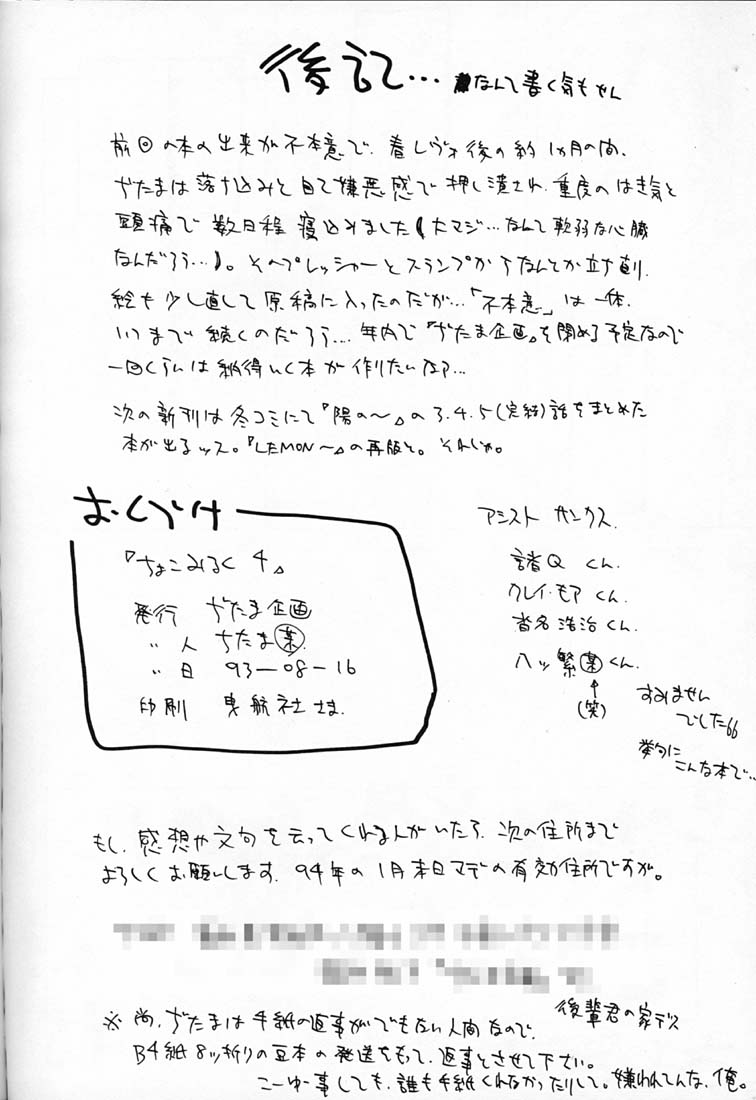 後記… なんて書く気もせん
前回の本の出来が不本意で、着レヴォ後の約1カ月の間、
ぢたまは落ち込みと自己嫌悪感で押し潰され、重度のはき気と
頭痛で数日程寝込みました(大マジ…なんて軟弱な心臓
なんだろう…)。そのプレッシャーとスランプからなんとか立ち直り、
絵も少し直して原稿に入ったのだが…「不本意」は一体、
いつまで続くのだろう…年内で『ぢたま企画』を閉める予定なので
一回くらいは納得いく本が作りたいなァ…
次の新刊は冬コミにて『陽の〜』の3.4.5(完結)話をまとめた
本が出るッス。『LEMON〜』の再版と。それじゃ。
おくづけ
『ちょこみるく 4』
発行 ぢたま企画
〃 人 ぢたま(某)
〃 日 93-08-16
印刷 曳航社さま
アシスト サンクス
諸Q くん.
クレイ・モア くん.
沓名浩治くん.
八ッ繁(某)くん.
↑
(笑)
すみません
でした
挙句に
こんな本で…
もし、感想や文句を云ってくれる人がいたら、次の住所まで
よろしくお願いします。94年の1月末日マデの有効住所ですが。
後輩君の家デス
※ 尚、ぢたまは手紙の返事がでもない人間なので、
B4紙8ッ折りの豆本の発送をもって、返事とさせて下さい。
こーゆー事しても、誰も手紙くれなかったりして。嫌われてんな、俺。